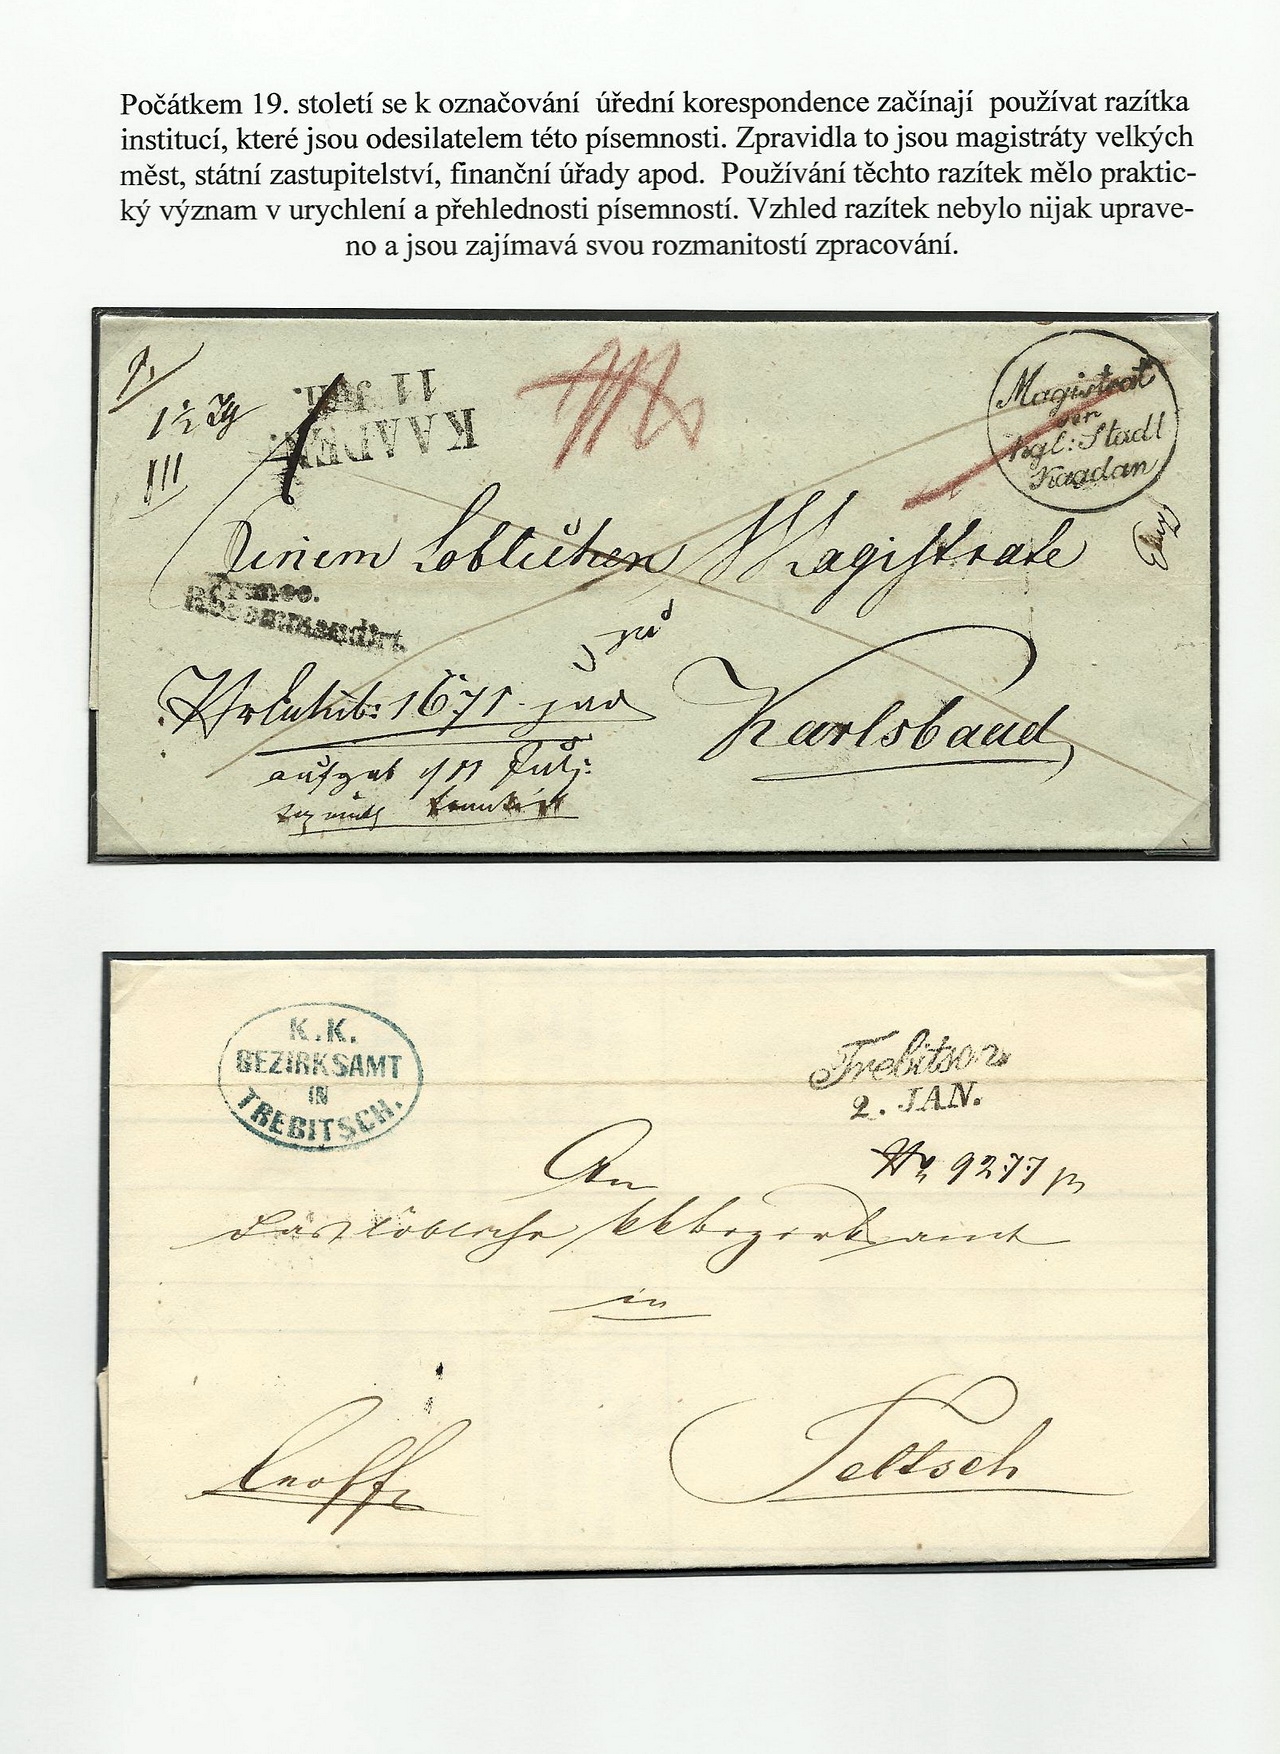 Počátkem 19. století se k označování úřední korespondence začínají používat razítka
institucí, které jsou odesilatelem této písemnosti. Zpravidla to jsou magistráty velkých
měst, státní zastupitelství, finanční úřady apod. Používání těchto razítek mělo praktic-
ký význam v urychlení a přehlednosti písemností. Vzhled razítek nebylo nijak uprave-
no a jsou zajímavá svou rozmanitostí zpracování.
1½
III
KAADEN.
11 JULI.
Magistrat
der
kgl: Stadt
Kaadan
Einem Löblichen Magistrate
Franco.
Recommandirt.
zu
1671
Karlsbaad
K.K.
BEZIRKSAMT
IN
TREBITSCH.
Trebitsch
2. JAN.
9277
An
das löbliche kk Bezirksamt
in
Teltsch